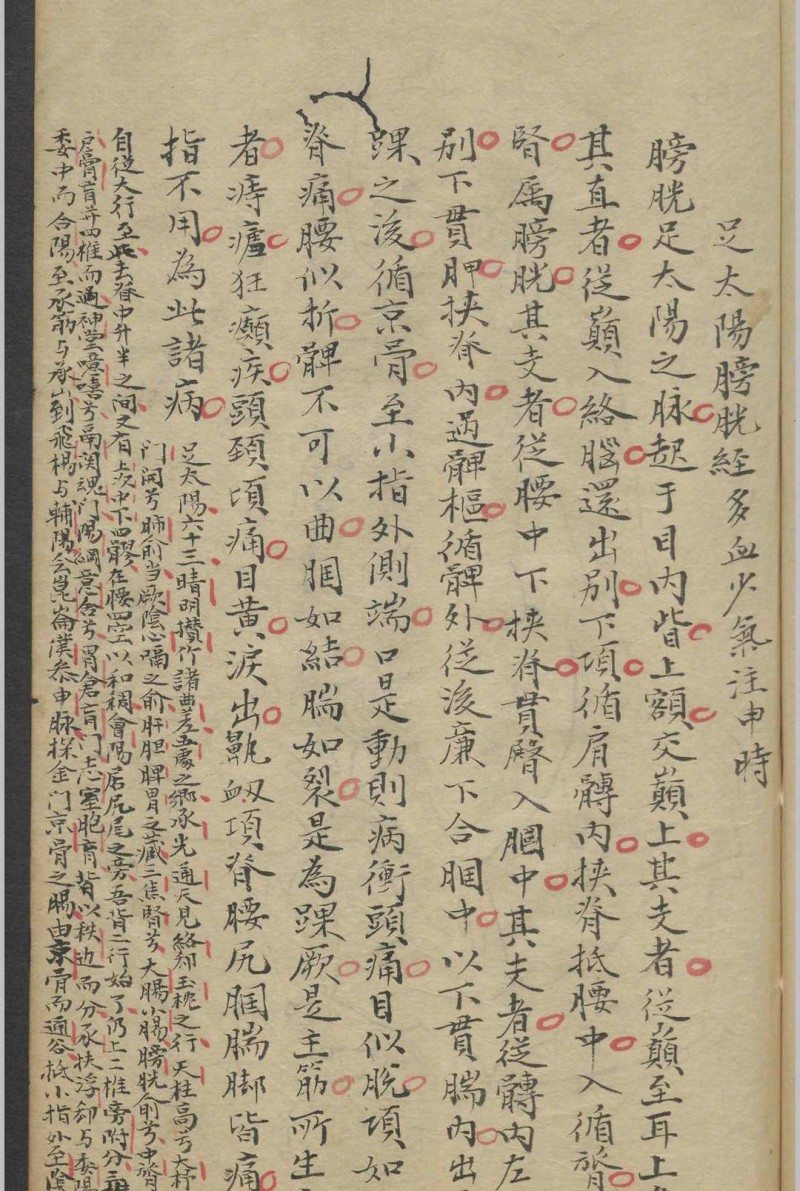 足太陽膀胱經多血少氣注申時
膀胱足太陽之脉起于目內眥上額交巔上其支者從巔至耳上
其直者從巔入絡腦還出別下項循肩髆內挾脊抵腰中入循膂
腎属膀胱其支者從腰中下挾脊貫臀入膕中其支者從髆內左
別下貫胛挾脊內過髀樞循髀外從後廉下合膕中以下貫腨內出
踝之後循京骨至小指外側端口是動則病衝頭痛目似脫項如
脊痛腰似折髀不可以曲膕如結腨如裂是為踝厥是主筋所生
者痔瘧狂癲疾頭頚項痛目黃淚出鼽衂項脊腰尻膕腨脚皆痛
指不用為此諸病
足太陽六十三睛明攅竹諸曲差五處之鄉承光通天見絡郄玉枕之行天柱高兮大杼
門開兮肺俞當厥陰心嗝之俞肝胆脾胃之藏三焦腎兮大腸小腸膀胱俞兮中膂
自從大行至此去脊中寸半之间又有上次中下四髎在腰四空以和稠會陽居尻尾之旁吾背二行始了仍上二椎旁附分
戶膏肓并四椎而過神堂噫嘻兮鬲関魂门陽綱意舍兮胃倉肓门志室胞肓背以秩边而分承扶浮郄与委陽
委中而合陽至承筋与承山到飛楊与輔陽会崑崙僕參申脉探金门京骨之腸由束骨而通谷抵小指外至陰